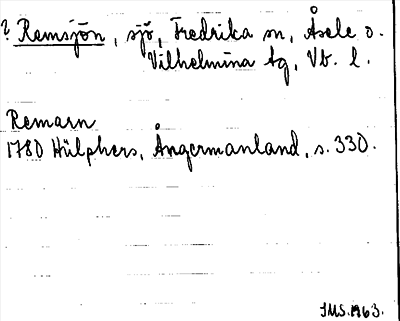 ? Remsjön, sjö, Fredrika sn, Åsele o.
Vilhelmina tg, Vb. l.
Remarn
1780 Hülphers, Ångermanland, s. 330.
IMS. 1963.